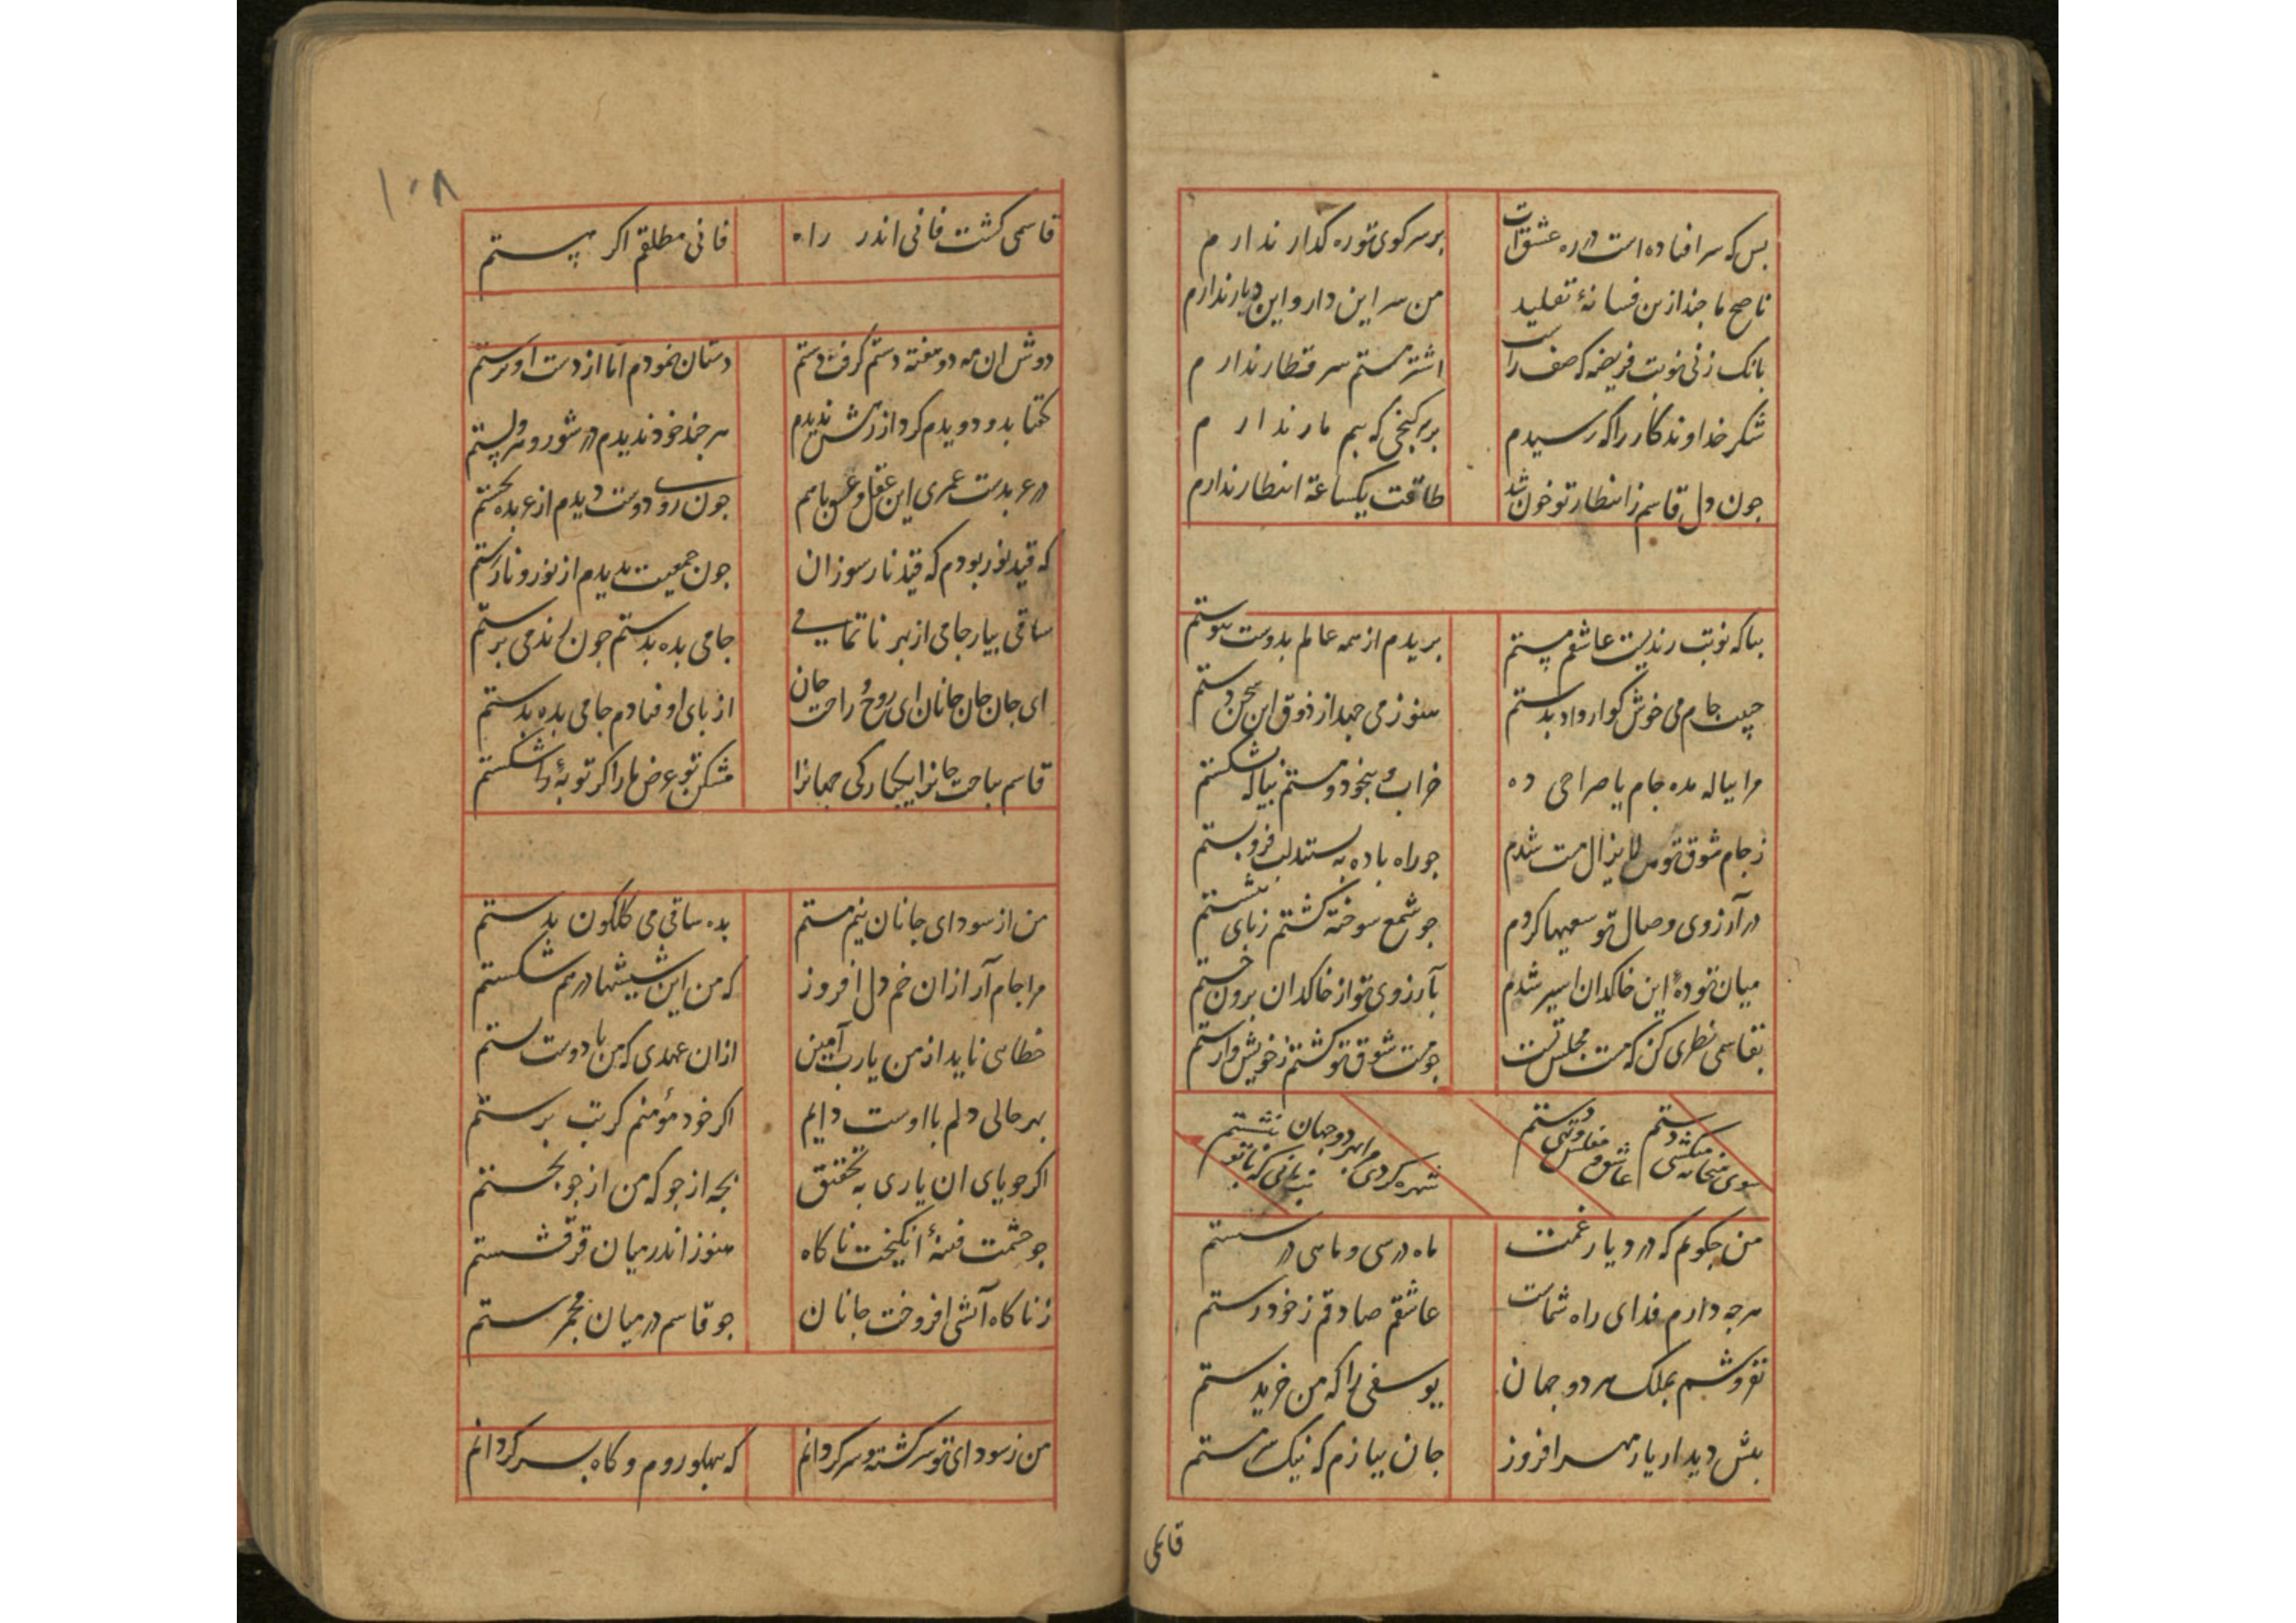 بس که سر افتاده است در ره عشقت   بر سر کوی تو ره کذار ندارم
ناصح ما جند ازین فسانهٔ تقلید   من سر این دار و این دیار ندارم
بانک زنی نوبت فریضه که صف راست   اشتر مستم سر قطار ندارم
شکر خداوندکار را که رسیدم   بر سر کنجی که بیم مار ندارم
جون دل قاسم ز انتظار تو خون شد   طاقت یکساعة انتظار ندارم
بیا که نوبت رندیست عاشقم مستم   بریدم از همه عالم بدوست پیوستم
حبیب جام می خوش کوار داد بدستم   هنوز می جهد از ذوق این سخن دستم
مرا بیاله مده جام یا صراحی ده   خراب و بیخود و مستم بیاله بشکستم
ز جام شوق تو من لایزال مست شدم   جو راه باده به بستند لب فرو بستم
در آرزوی وصال تو سعیها کردم   جو شمع سوخته کشتم ز بای ننشستم
میان تودهٔ این خاکدان اسیر شدم   بآرزوی تو از خاکدان برون جستم
بقاسمی نظری کن که مست مجلس تست   جو مست شوق تو کشتم ز خویش وارستم
سوی میخانه میکشی دستم   عاشق و مفلس و تهی دستم
شهره کردی مرا بهر دو جهان   بی تو ننشستم
من جکویم که در دیار غمت   ماه در سی و ماهی در شستم
هرجه دارم فدای راه شماست   عاشقم صادقم ز خود رستم
نفروشم بملک هر دو جهان   یوسفی را که من خریدستم
بیش دیدار یار مهر افروز   جان ببازم که نیک سر مستم
قاسمی
۱۰۸
قاسمی کشت فانی اندر راه   فانی مطلقم اکر هستم
دوش ان مه دو هفته دستم کرفت دستم   دستان نمودم اما از دست او نرستم
کفتا بدو دویدم کرد از رهش ندیدم   هرجند خود ندیدم در شور و
در عربدست عمری این عقل و عشق باهم   جون روی دوست دیدم از عربده بجستم
که قید نور بودم که قید نار سوزان   جون جمعیت بدیدم از نور و نار رستم
ساقی بیار جامی از بهر ناتمامی   جامی بده بدستم جون رند می برستم
ای جان جان جانان ای روح و راحت جان   از بای اوفتادم جامی بده بدستم
قاسم بباخت جانرا یکبارکی جهانرا   مشکن تو عرض ما را کر توبهٔ شکستم
من از سودای جانان نیم مستم   بده ساقی می کلکون بدستم
مرا جام آر ازان خم دل افروز   که من این شیشها درهم شکستم
خطاهی ناید از من یارب آمین   ازان عهدی که من با دوست بستم
بهر حالی دلم با اوست دایم   اکر خود مؤمنم کر بت برستم
اکر جویای ان یاری به تحقیق   بجه از جو که من از جو بجستم
جو جشمت فتنهٔ انکیخت ناکاه   هنوز اندر میان فرق شستم
ز ناکاه آتشی افروخت جانان   جو قاسم در میان مجمرستم
من ز سودای تو سرکشته و سرکردانم   که ببهلو روم و کاه بسر کردانم